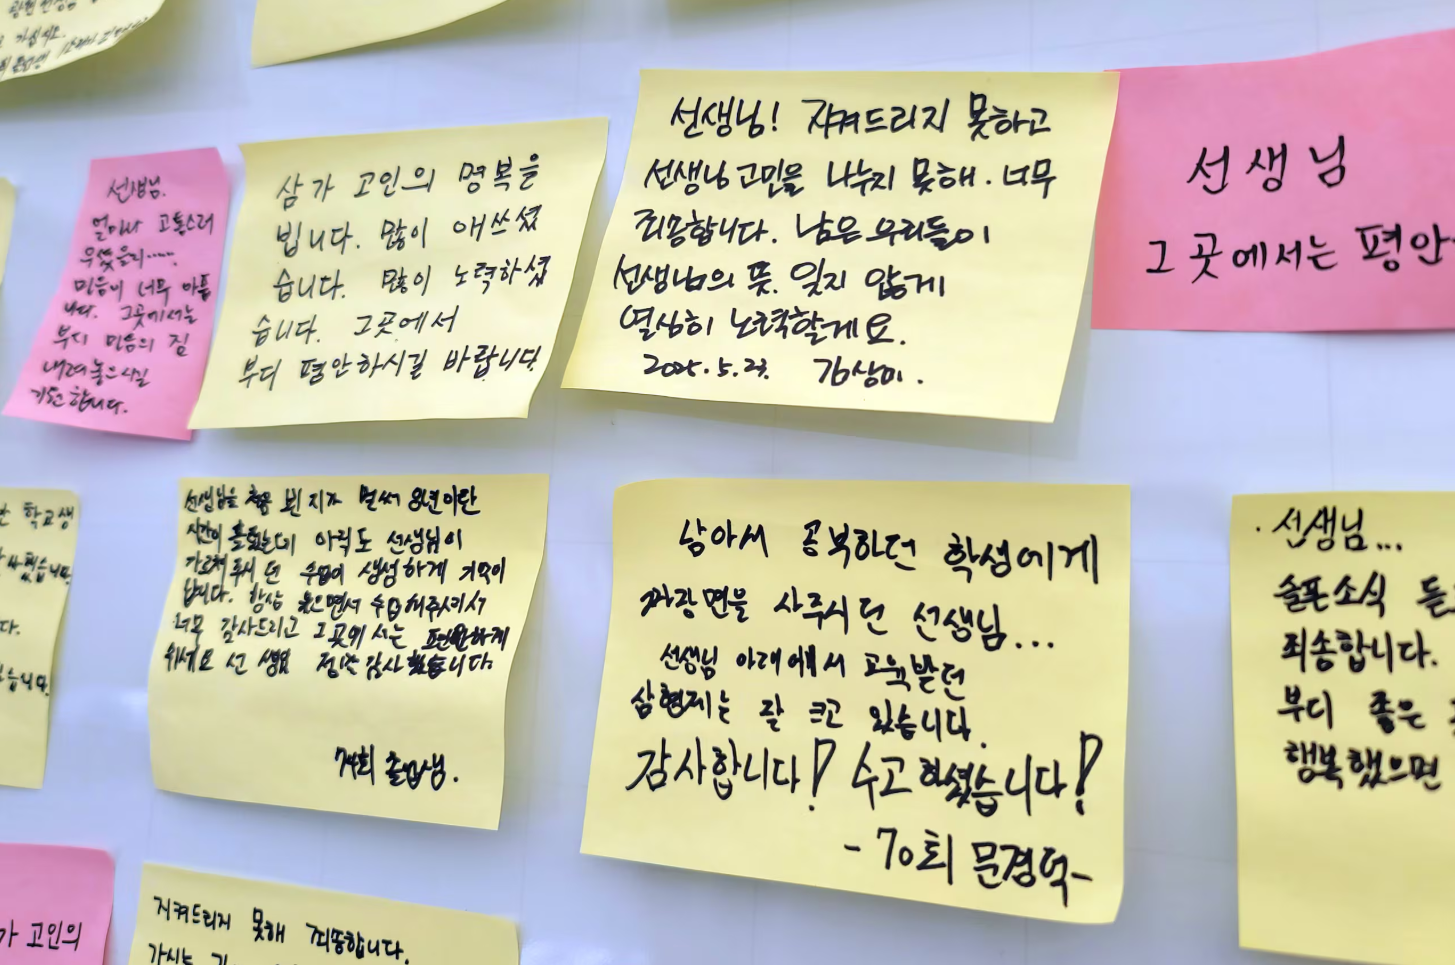 가십시오.
선생님.
얼마나 고통스러
우셨을지.....
마음이 너무 아픕
니다. 그곳에서는
부디 마음의 짐
내려놓으시길
기도합니다.
삼가 고인의 명복을
빕니다. 많이 애쓰셨
습니다. 많이 노력하셨
습니다. 그곳에서
부디 평안하시길 바랍니다.
선생님! 지켜드리지 못하고
선생님 고민을 나누지 못해. 너무
죄송합니다. 남은 우리들이
선생님의 뜻. 잊지 않게
열심히 노력할게요.
2025.5.23. 김상미.
선생님
그곳에서는 평안
학교생
습니다.
다.
습니다.
선생님을 처음 뵌 지가 벌써 8년이란
시간이 흘렀는데 아직도 선생님이
가르쳐주시던 수업이 생생하게 기억이
납니다. 항상 웃으면서 수업해주셔서
너무 감사드리고 그곳에서는 편안하게
쉬세요 선생님 정말 감사했습니다.
74회 졸업생.
남아서 공부하던 학생에게
짜장면을 사주시던 선생님...
선생님 아래에서 교육받던
삼형제는 잘 크고 있습니다.
감사합니다! 수고하셨습니다!
-70회 문경덕-
·선생님...
슬픈소식 듣
죄송합니다.
부디 좋은
행복했으면
가 고인의
지켜드리지 못해 죄송합니다.
가시는